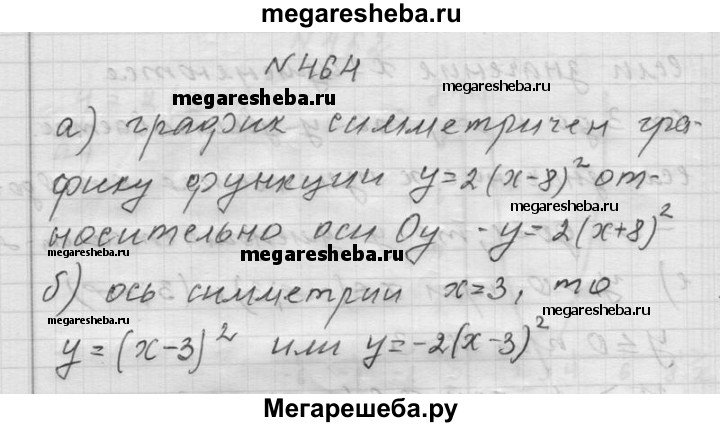 megaresheba.ru
№464
megaresheba.ru
megaresheba.ru
а) график симметричен гра-
фику функции y=2(x-8)² от-
megaresheba.ru
носительно оси Oy - y=2(x+8)²
megaresheba.ru
megaresheba.ru
б) ось симметрии x=3, то
megaresheba.ru
megaresheba.ru
y=(x-3)² или y=-2(x-3)²
Мегарешеба.ру